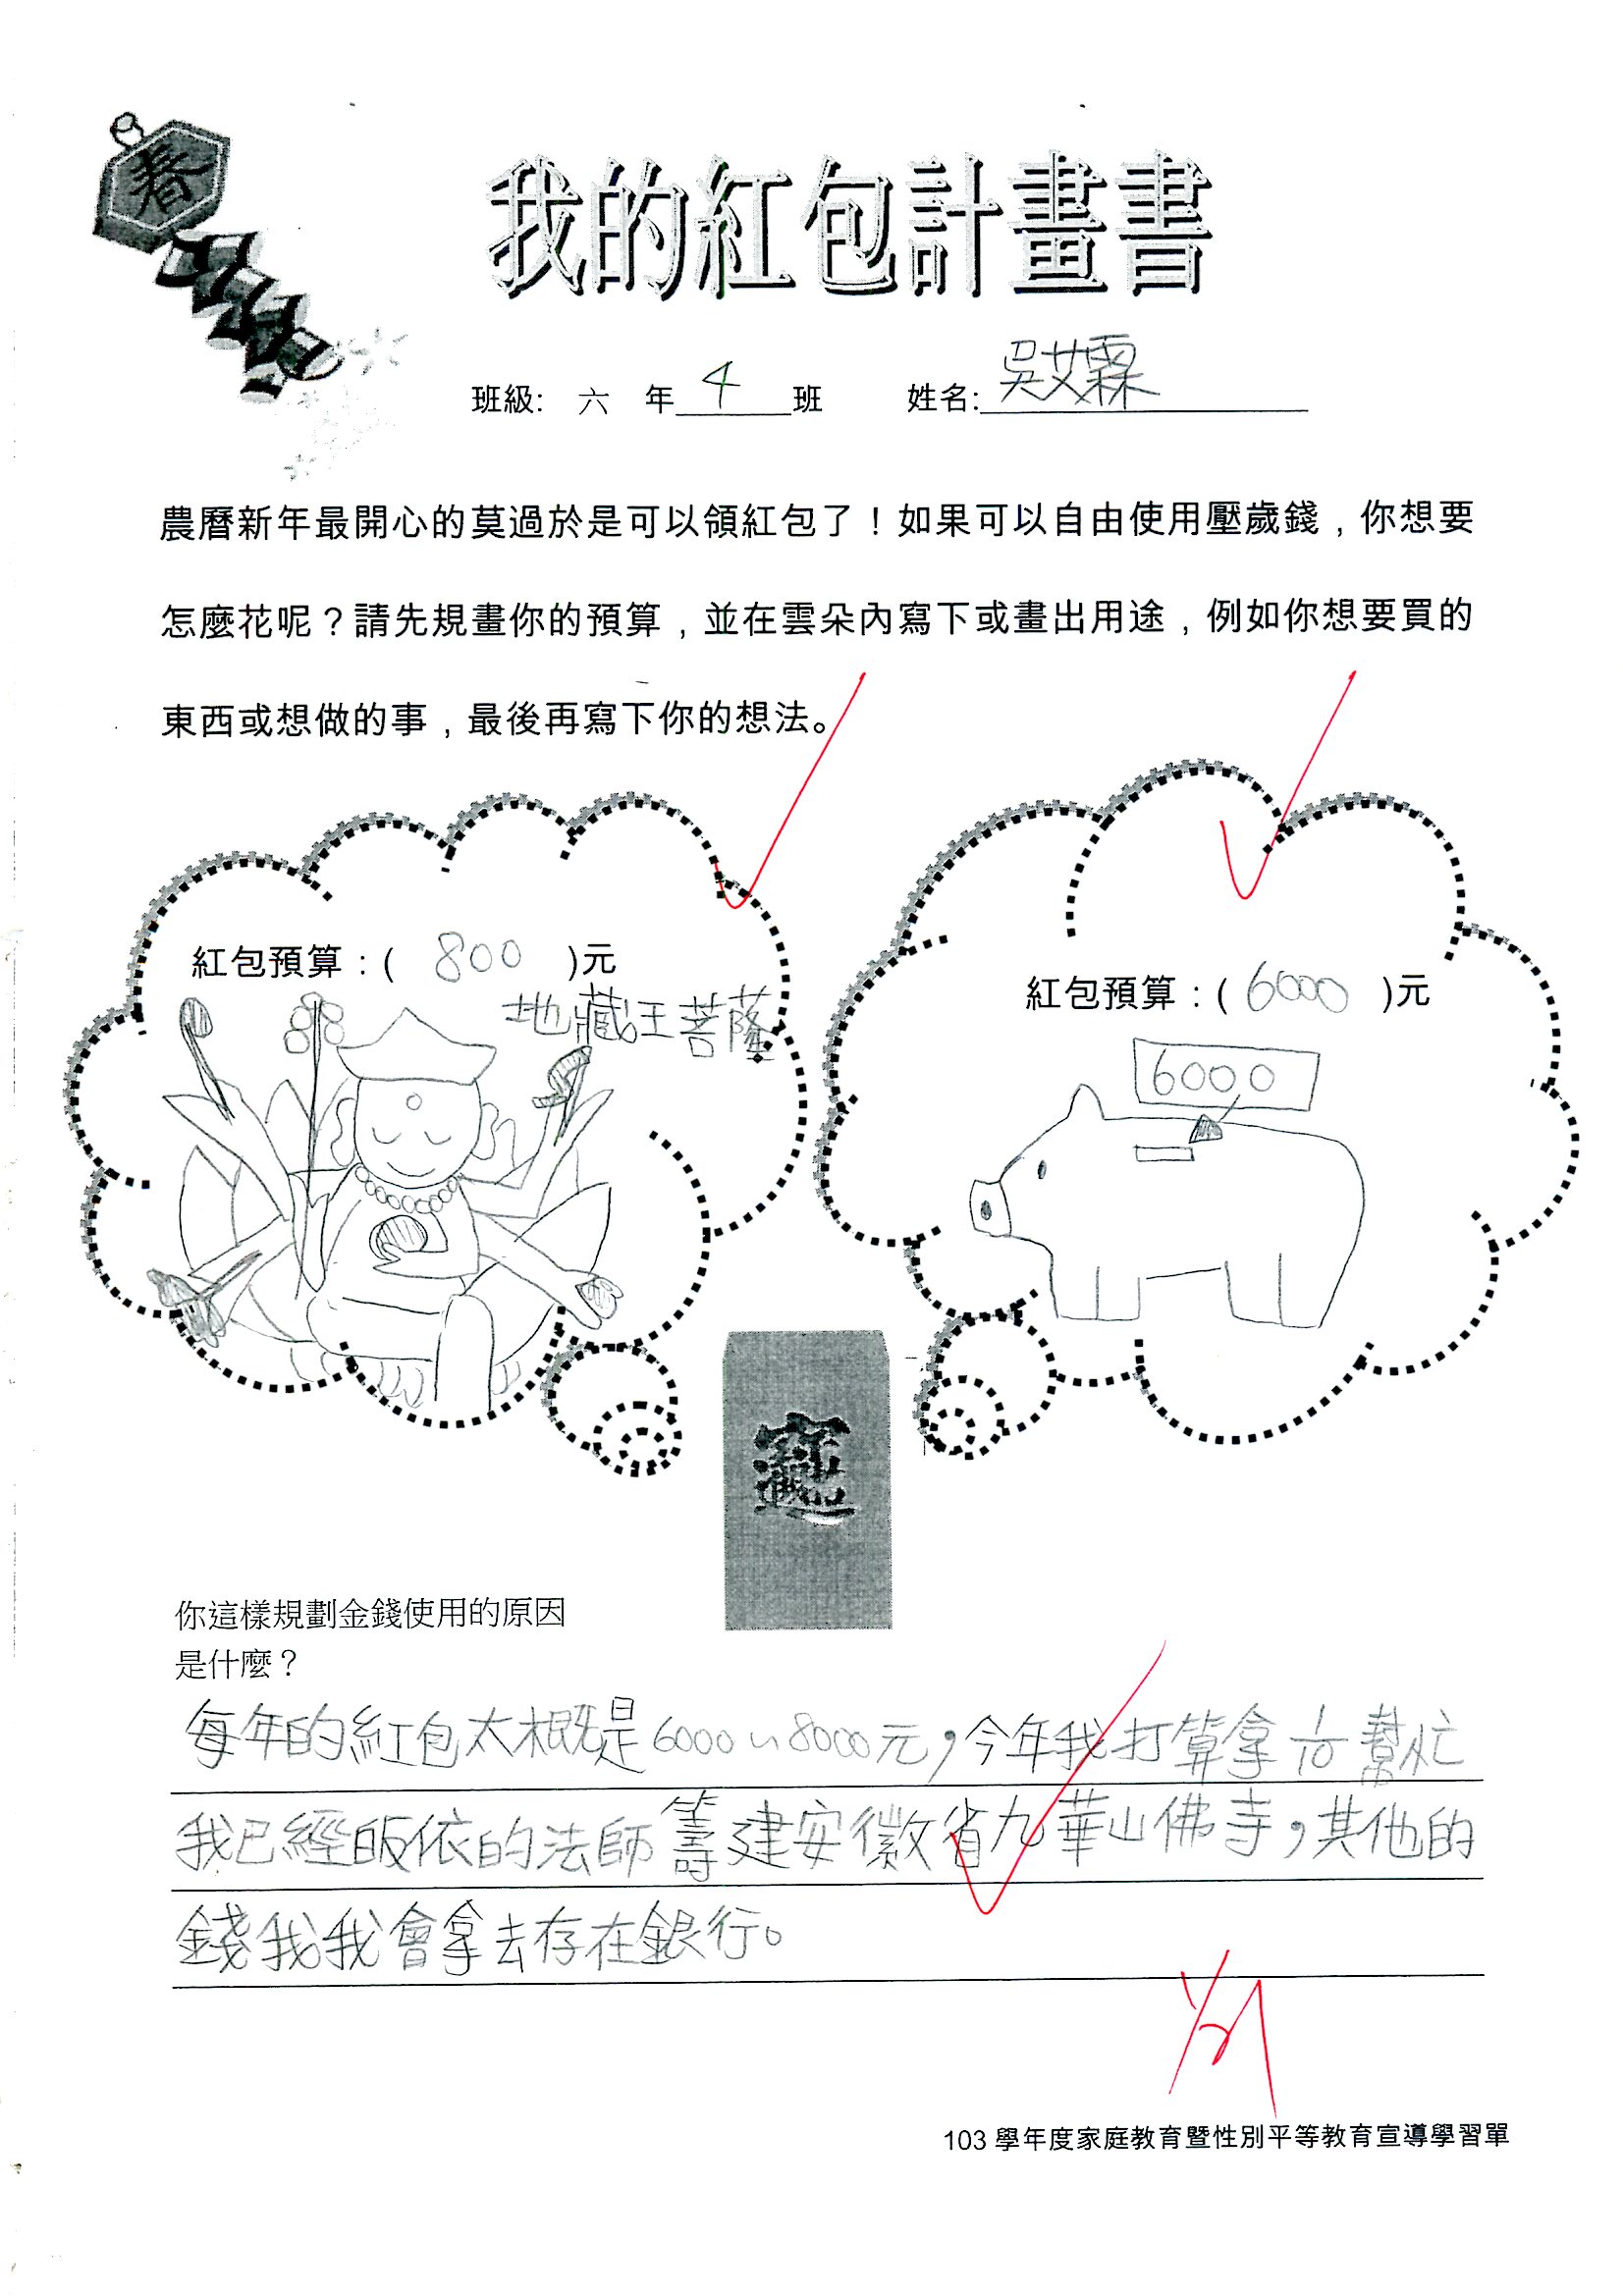 春
我的紅包計畫書
班級: 六 年 4 班 姓名: 吳艾霖
農曆新年最開心的莫過於是可以領紅包了！如果可以自由使用壓歲錢，你想要
怎麼花呢？請先規畫你的預算，並在雲朵內寫下或畫出用途，例如你想要買的
東西或想做的事，最後再寫下你的想法。
紅包預算：( 800 )元
地藏王菩薩
紅包預算：( 6000 )元
6000
你這樣規劃金錢使用的原因
是什麼？
每年的紅包太概是6000~8000元，今年我打算拿1/10幫忙
我已經皈依的法師籌建安徽省九華山佛寺，其他的
錢我我會拿去存在銀行。
103 學年度家庭教育暨性別平等教育宣導學習單